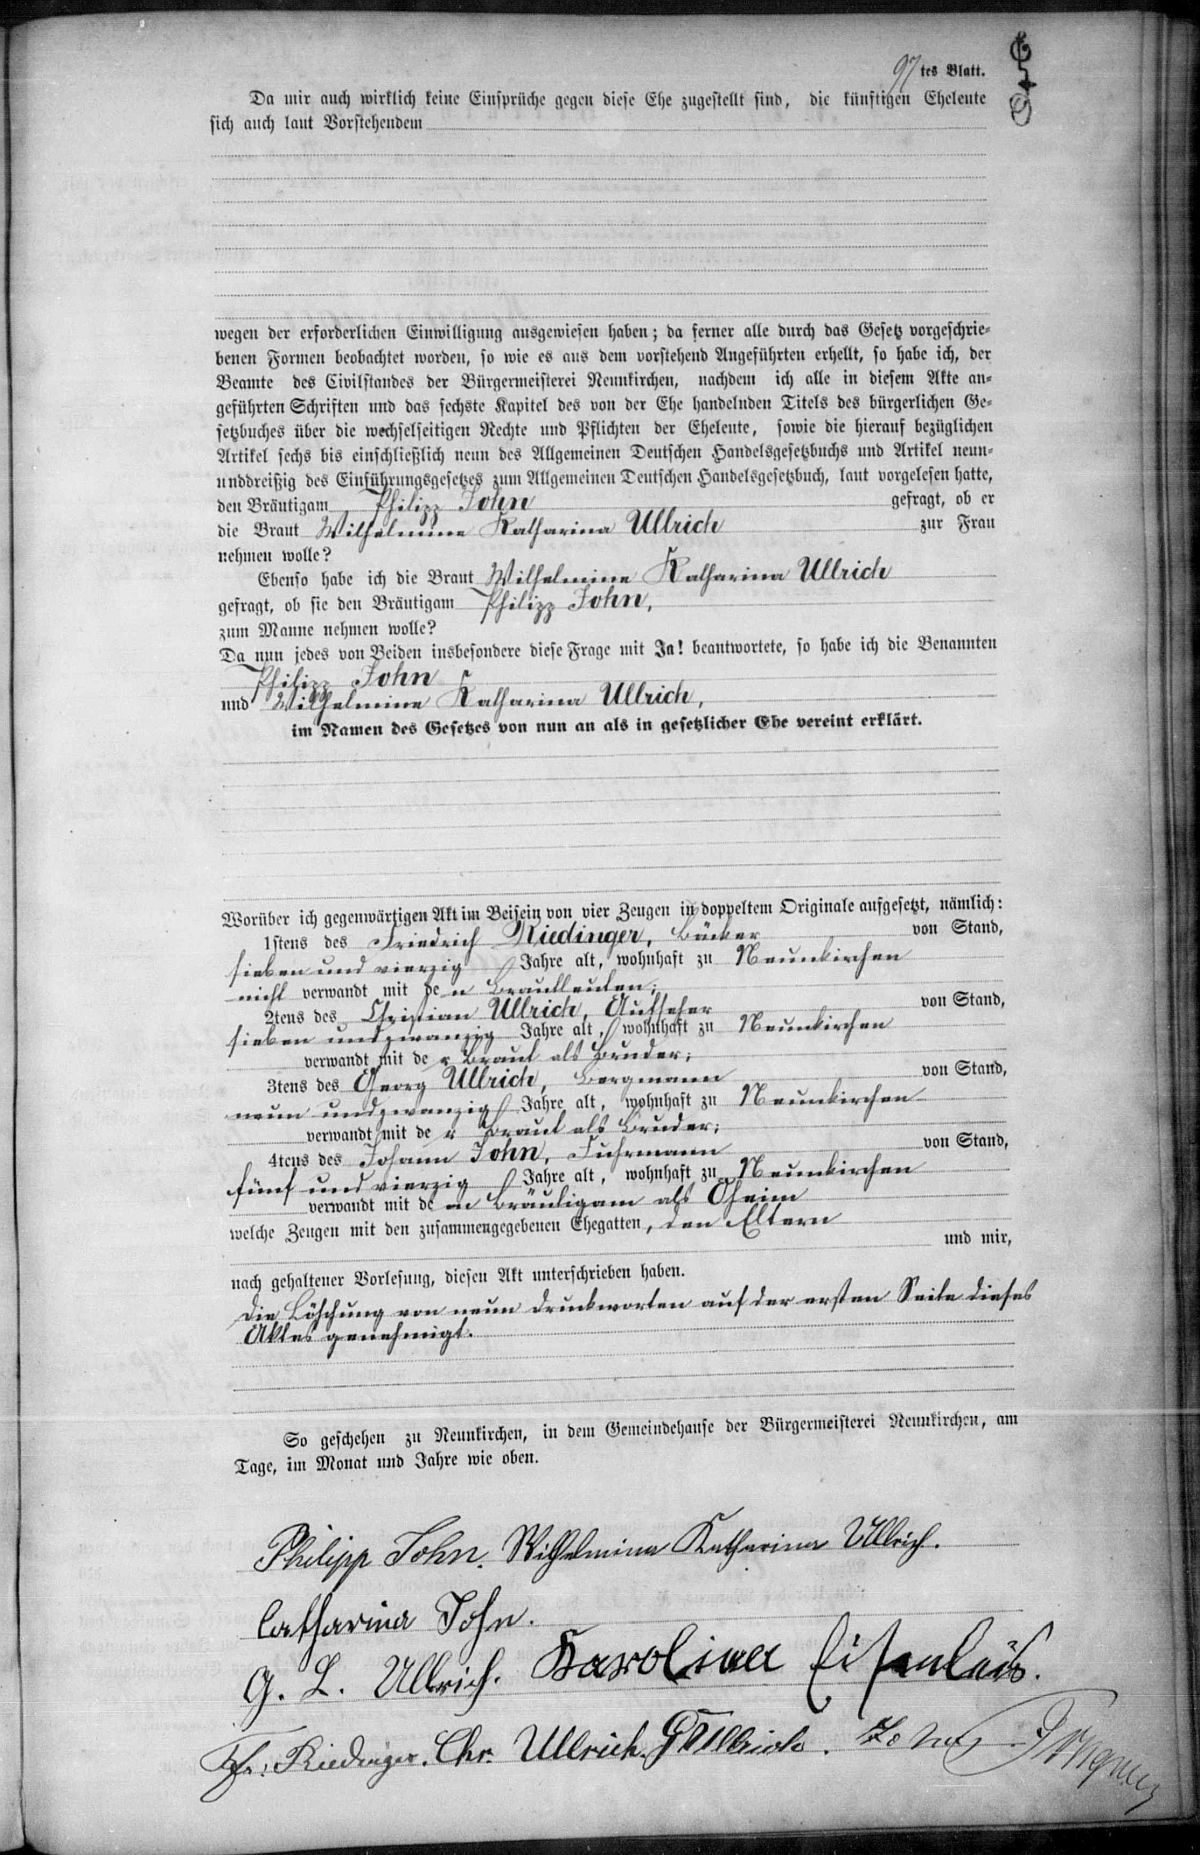 97 tes Blatt.
Da mir auch wirklich keine Einsprüche gegen diese Ehe zugestellt sind, die künftigen Eheleute
sich auch laut Vorstehendem
wegen der erforderlichen Einwilligung ausgewiesen haben; da ferner alle durch das Gesetz vorgeschrie-
benen Formen beobachtet worden, so wie es aus dem vorstehend Angeführten erhellt, so habe ich, der
Beamte des Civilstandes der Bürgermeisterei Neunkirchen, nachdem ich alle in diesem Akte an-
geführten Schriften und das sechste Kapitel des von der Ehe handelnden Titels des bürgerlichen Ge-
setzbuches über die wechselseitigen Rechte und Pflichten der Eheleute, sowie die hierauf bezüglichen
Artikel sechs bis einschließlich neun des Allgemeinen Deutschen Handelsgesetzbuchs und Artikel neun-
unddreißig des Einführungsgesetzes zum Allgemeinen Deutschen Handelsgesetzbuch, laut vorgelesen hatte,
den Bräutigam Philipp John gefragt, ob er
die Braut Wilhelmine Katharina Ullrich zur Frau
nehmen wolle?
Ebenso habe ich die Braut Wilhelmine Katharina Ullrich
gefragt, ob sie den Bräutigam Philipp John,
zum Manne nehmen wolle?
Da nun jedes von Beiden insbesondere diese Frage mit Ja! beantwortete, so habe ich die Benannten
Philipp John
und Wilhelmine Katharina Ullrich,
im Namen des Gesetzes von nun an als in gesetzlicher Ehe vereint erklärt.
Worüber ich gegenwärtigen Akt im Beisein von vier Zeugen in doppeltem Originale aufgesetzt, nämlich:
1stens des Friedrich Riedinger, Bäcker von Stand,
sieben und vierzig Jahre alt, wohnhaft zu Neunkirchen
nicht verwandt mit den Brautleuten;
2tens des Christian Ullrich, Aufseher von Stand,
sieben undzwanzig Jahre alt, wohnhaft zu Neunkirchen
verwandt mit der Braut als Bruder;
3tens des Georg Ullrich, Bergmann von Stand,
neun undzwanzig Jahre alt, wohnhaft zu Neunkirchen
verwandt mit der Braut als Bruder;
4tens des Johann John, Fuhrmann von Stand,
fünf und vierzig Jahre alt, wohnhaft zu Neunkirchen
verwandt mit dem Bräutigam als Oheim
welche Zeugen mit den zusammengegebenen Ehegatten, den Eltern
und mir,
nach gehaltener Vorlesung, diesen Akt unterschrieben haben.
Die Löschung von neun Druckworten auf der ersten Seite dieses
Aktes genehmigt.
So geschehen zu Neunkirchen, in dem Gemeindehause der Bürgermeisterei Neunkirchen, am
Tage, im Monat und Jahre wie oben.
Philipp John. Wilhelmina Katharina Ullrich.
Catharina John.
G. L. Ullrich. Karolina Eisenbeis.
Fr. Riedinger. Chr. Ullrich. G Ullrich. John